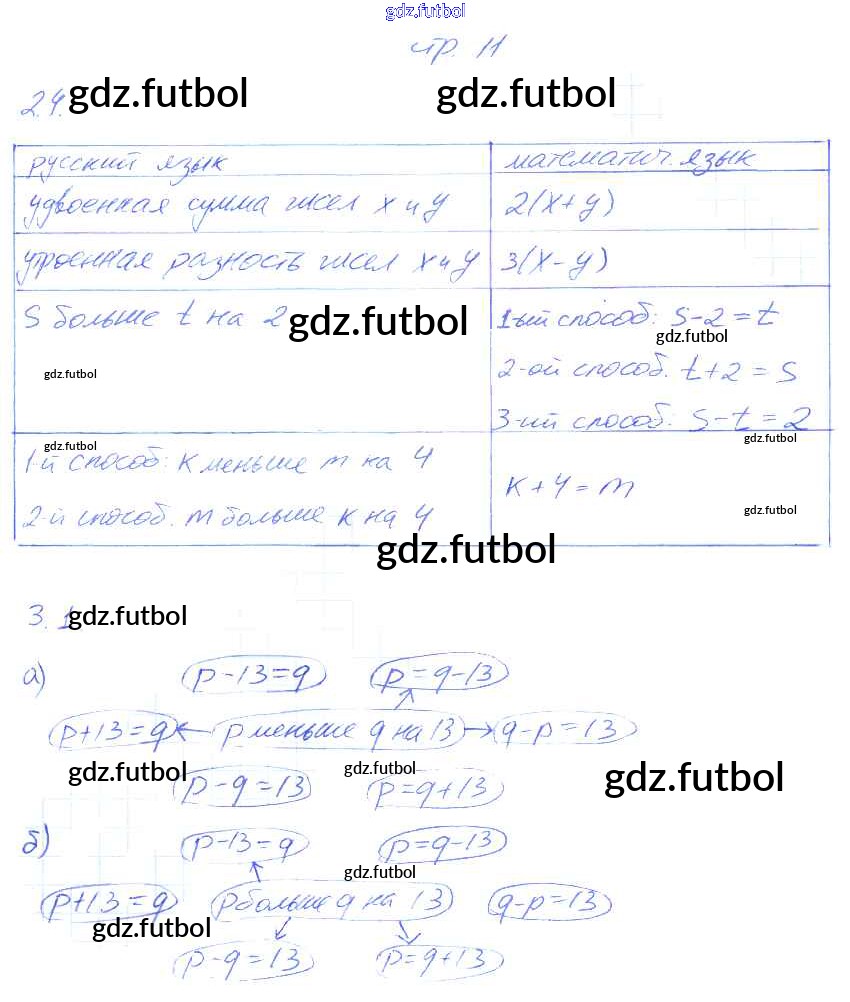 gdz.futbol
стр. 11
2.4. gdz.futbol gdz.futbol
русский язык математич. язык
удвоенная сумма чисел x и y 2(x+y)
утроенная разность чисел x и y 3(x-y)
s больше t на 2 gdz.futbol 1-ый способ: s-2=t
gdz.futbol
gdz.futbol 2-ой способ. t+2=s
3-ий способ: s-t=2
gdz.futbol gdz.futbol
1-й способ: к меньше m на 4
к+4=m
2-й способ. m больше к на 4 gdz.futbol
gdz.futbol
3.1 gdz.futbol
а) p-13=q p=q-13
p+13=q p меньше q на 13 q-p=13
gdz.futbol gdz.futbol gdz.futbol
p-q=13 p=q+13
б) p-13=q p=q-13
gdz.futbol
p+13=q p больше q на 13 q-p=13
gdz.futbol
p-q=13 p=q+13